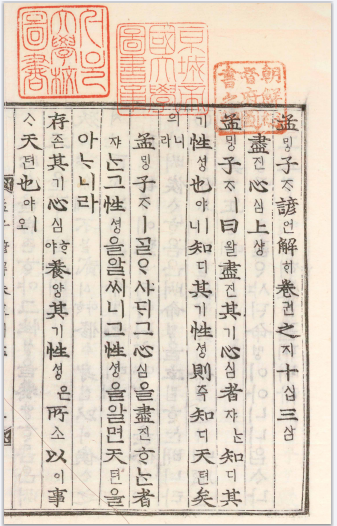 孟밍子ᄌᆞ諺언解ᄒᆡ卷권之지十십三삼
盡진心심上샹
孟밍子ᄌᆞㅣ曰왈盡진其기心심者쟈ᄂᆞᆫ知디其
기性셩也야ㅣ니知디其기性셩則즉知디天텬矣
의니라
孟밍子ᄌᆞㅣᄀᆞᆯᄋᆞ샤ᄃᆡ그心심을盡진ᄒᆞᄂᆞᆫ者
쟈ᄂᆞᆫ그性셩을알ᄊᆡ니그性셩을알면天텬을
아ᄂᆞ니라
存존其기心심ᄒᆞ야養양其기性셩은所소以이事
ᄉᆞ天텬也야ㅣ오
京城帝國大學圖書章
大學校圖書